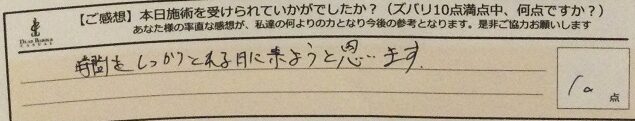 【ご感想】本日施術を受けられていかがでしたか？（ズバリ10点満点中、何点ですか？）
あなた様の率直な感想が、私達の何よりの力となり今後の参考となります。是非ご協力お願いします
時間をしっかりとれる日に来ようと思います。
10点